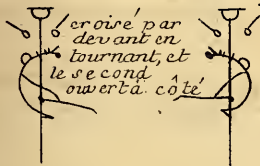 croisé par
devant en
tournant, et
le second
ouvert à côté